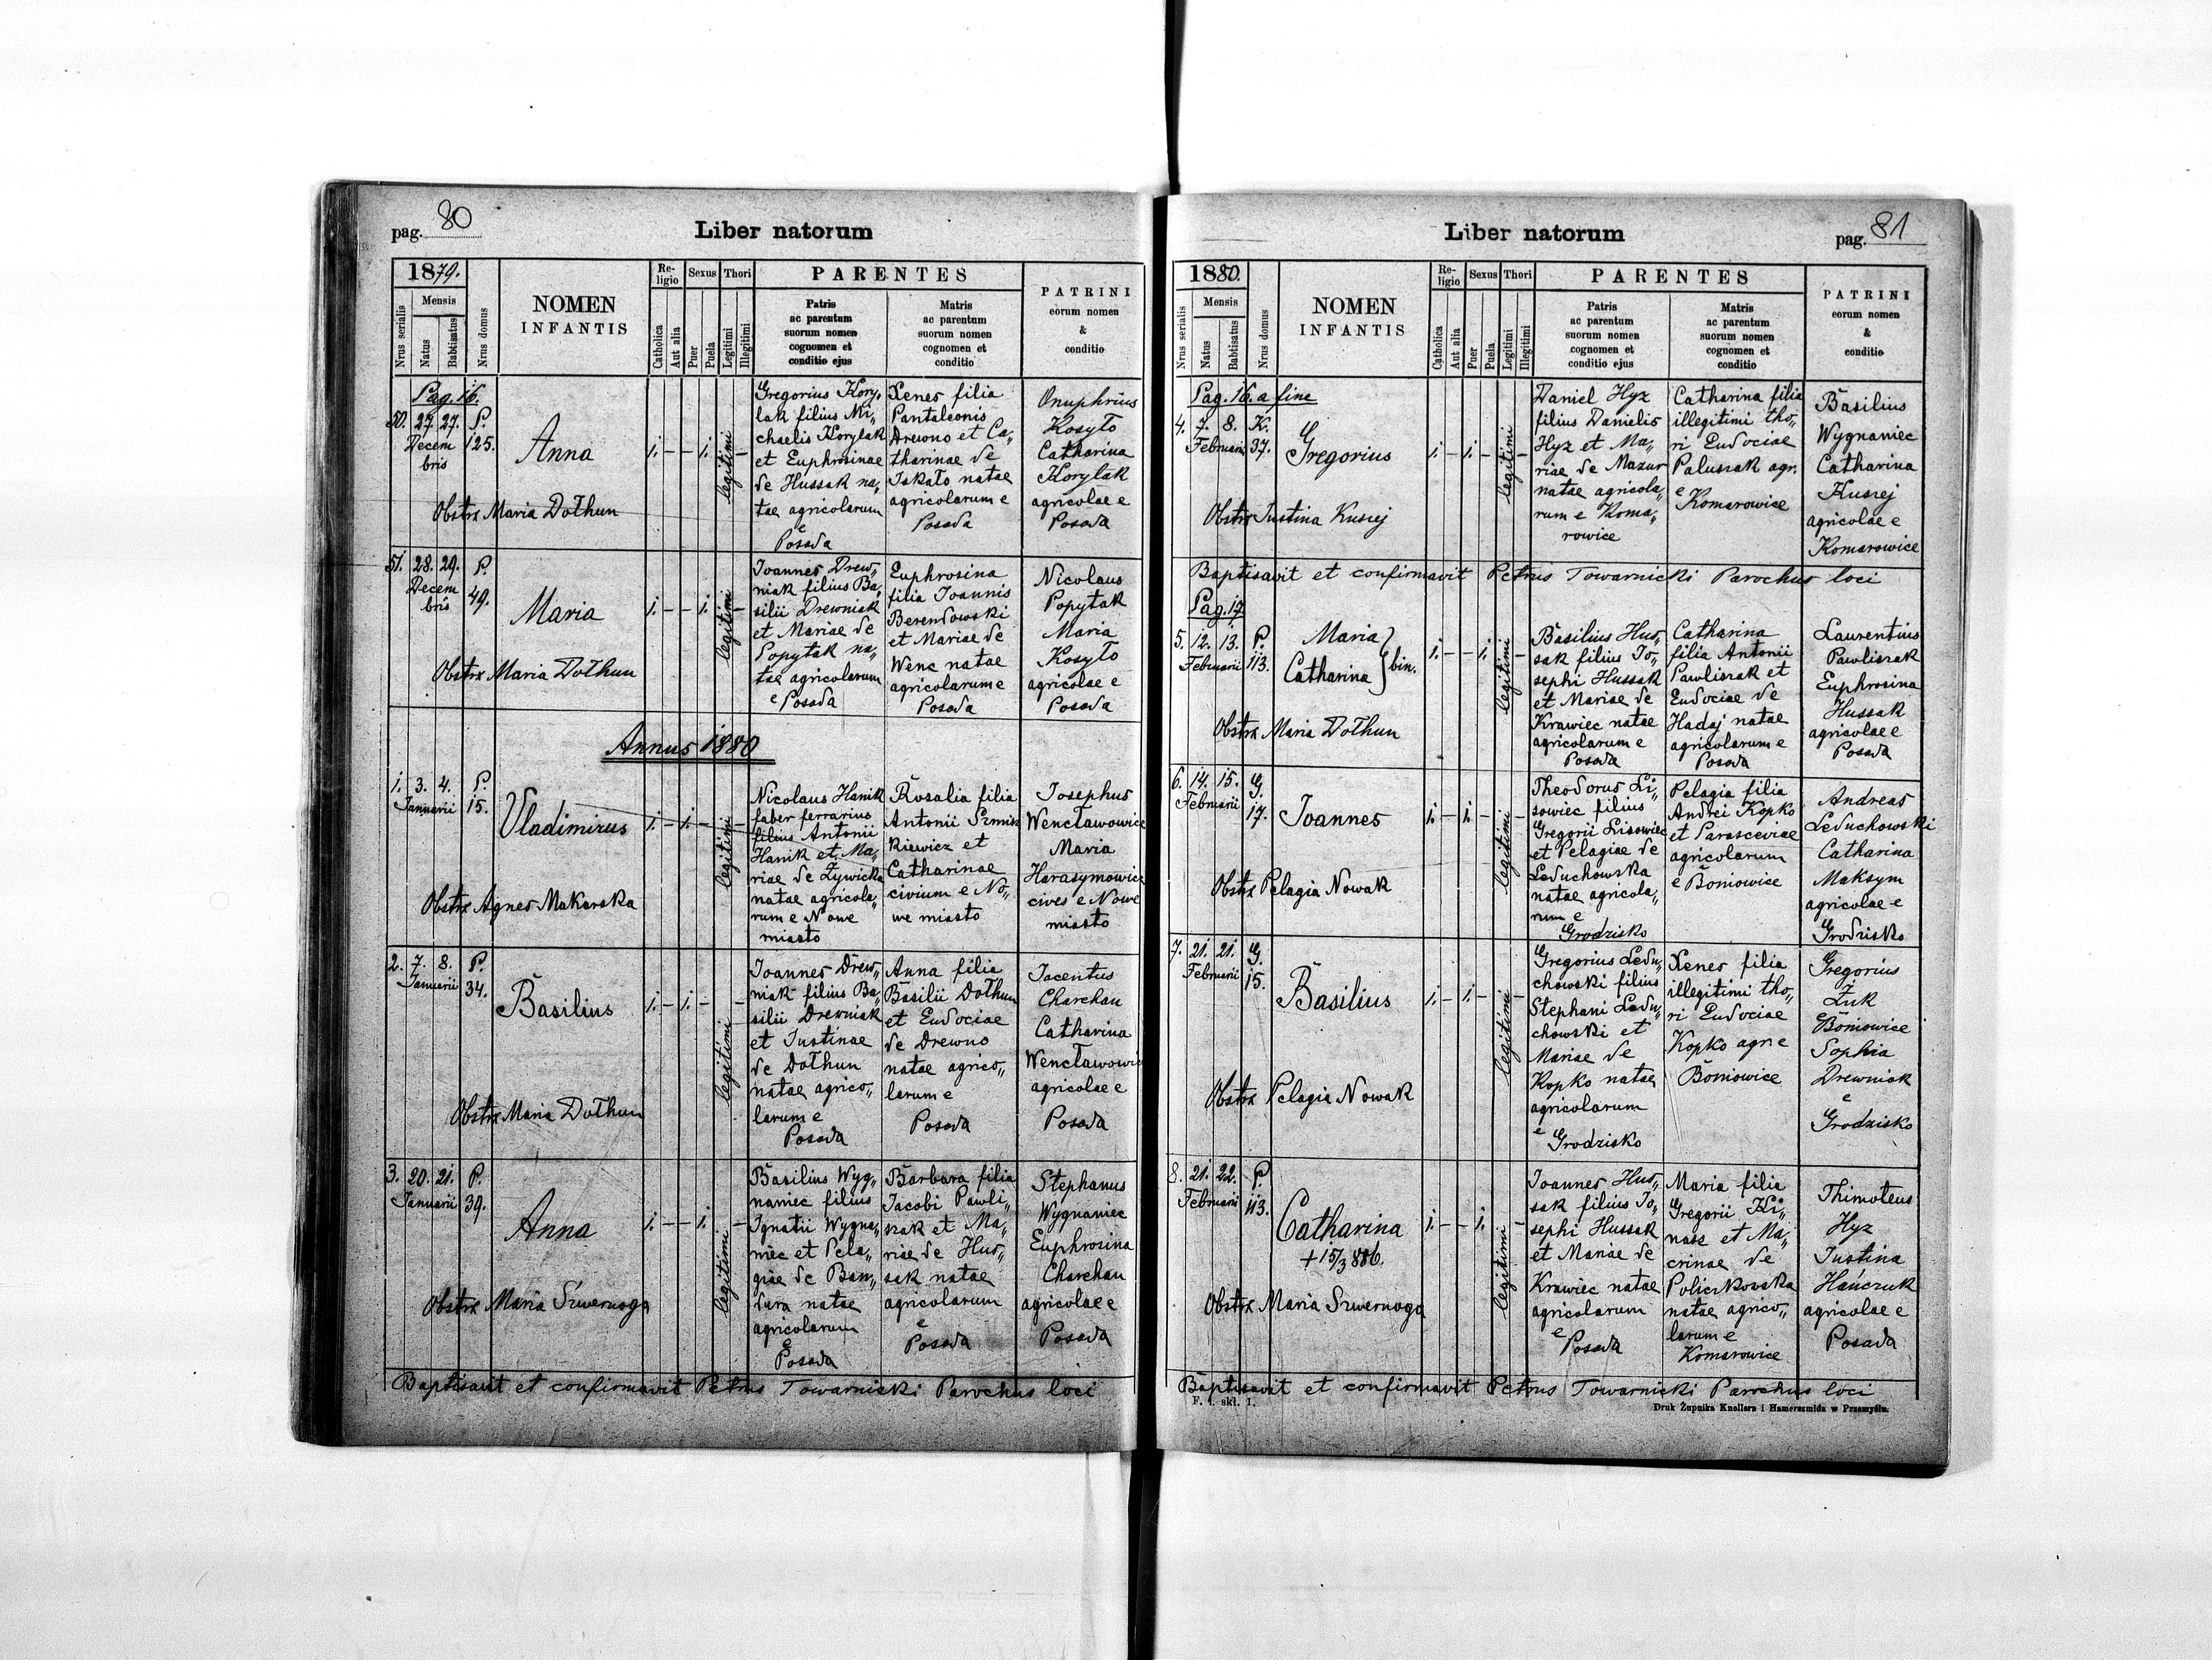 pag. 80
Liber natorum
1879.
Nrus serialis
Mensis
Natus
Babtisatus
Nrus domus
NOMEN
INFANTIS
Re-
ligio
Catholica
Aut alia
Sexus
Puer
Puela
Thori
Legitimi
Illegitimi
PARENTES
Patris
ac parentum
suorum nomen
cognomen et
conditio ejus
Matris
ac parentum
suorum nomen
cognomen et
conditio
PATRINI
eorum nomen
&
conditio
Pag. 16.
50. 27. 27. P.
Decem 125.
bris
Anna
1. – – 1. legitimi –
Obstrx Maria Dołhun
Gregorius Kory„
lak filius Mi„
chaelis Korylak
et Euphrosinae
de Hussak na„
tae agricolarum
e
Posada
Xenes filia
Pantaleonis
Drewno et Ca„
tharinae de
Jakało natae
agricolarum e
Posada
Onuphrius
Kosyło
Catharina
Korylak
agricolae e
Posada
51. 28. 29. P.
Decem
bris 49.
Maria
1. – – 1. legitimi –
Obstrx Maria Dołhun
Joannes Drew„
niak filius Ba„
silii Drewniak
et Mariae de
Popytak na„
tae agricolarum
e Posada
Euphrosina
filia Joannis
Berendowski
et Mariae de
Wenc natae
agricolarum e
Posada
Nicolaus
Popytak
Maria
Kosyło
agricolae e
Posada
Annus 1880
1. 3. 4. P.
Januarii 15.
Vladimirus
1. – 1. – legitimi –
Obstrx Agnes Makarska
Nicolaus Hanik
faber ferrarius
filius Antonii
Hanik et Ma„
riae de Żywicka
natae agricola„
rum e Nowe
miasto
Rosalia filia
Antonii
kiewicz et
Catharinae
civium e No„
we miasto
Josephus
Wencławowicz
Maria
Harasymowicz
cives e Nowe
miasto
2. 7. 8. P.
Januarii 34.
Basilius
1. – 1. – legitimi –
Obstrx Maria Dołhun
Joannes Drew„
niak filius Ba„
silii Drewniak
et Justinae
de Dołhun
natae agrico„
larum e
Posada
Anna filia
Basilii Dołhun
et Eudociae
de Drewno
natae agrico„
larum e
Posada
Jacentus
Charchan
Catharina
Wencławowicz
agricolae e
Posada
3. 20. 21. P.
Januarii 39.
Anna
1. – – 1. legitimi –
Obstrx Maria Szwernoga
Basilius Wyg„
naniec filius
Ignatii Wygna„
niec et Pela„
giae de Ban„
dura natae
agricolarum
e
Posada
Barbara filia
Jacobi Pawli„
szak et Ma„
riae de Hus„
sak natae
agricolarum
e
Posada
Stephanus
Wygnaniec
Euphrosina
Charchan
agricolae e
Posada
Baptisavit et confirmavit Petrus Towarnicki Parochus loci
Liber natorum
pag. 81
1880.
Nrus serialis
Mensis
Natus
Babtisatus
Nrus domus
NOMEN
INFANTIS
Re-
ligio
Catholica
Aut alia
Sexus
Puer
Puela
Thori
Legitimi
Illegitimi
PARENTES
Patris
ac parentum
suorum nomen
cognomen et
conditio ejus
Matris
ac parentum
suorum nomen
cognomen et
conditio
PATRINI
eorum nomen
&
conditio
Pag. 16. a fine
4. 7. 8. K.
Februarii 37.
Gregorius
1. – 1. – legitimi –
Obstrx Justina Kuszej
Daniel Hyz
filius Danielis
Hyz et Ma„
riae de Mazur
natae agricola„
rum e Koma„
rowice
Catharina filia
illegitimi tho„
ri Eudociae
Paluszak agr.
e
Komarowice
Basilius
Wygnaniec
Catharina
Kuszej
agricolae e
Komarowice
Baptisavit et confirmavit Petrus Towarnicki Parochus loci
Pag. 17.
5. 12. 13. P.
Februarii 113.
Maria
Catharina } bin.
1. – – 1. legitimi –
Obstrx Maria Dołhun
Basilius Hus„
sak filius Jo„
sephi Hussak
et Mariae de
Krawiec natae
agricolarum e
Posada
Catharina
filia Antonii
Pawliszak et
Eudociae de
Hadaj natae
agricolarum e
Posada
Laurentius
Pawliszak
Euphrosina
Hussak
agricolae e
Posada
6. 14. 15. G.
Februarii 17.
Joannes
1. – 1. – legitimi –
Obstrx Pelagia Nowak
Theodorus Li„
sowiec filius
Gregorii Lisowiec
et Pelagiae de
Leduchowska
natae agricola„
rum e
Grodzisko
Pelagia filia
Andrei Kopko
et Parasceviae
agricolarum
e Boniowice
Andreas
Leduchowski
Catharina
Maksym
agricolae e
Grodzisko
7. 21. 21. G.
Februarii 15.
Basilius
1. – 1. – legitimi –
Obstrx Pelagia Nowak
Gregorius Ledu„
chowski filius
Stephani Ledu„
chowski et
Mariae de
Kopko natae
agricolarum
e Grodzisko
Xenes filia
illegitimi tho„
ri Eudociae
Kopko agr e
Boniowice
Gregorius
Żuk
Boniowice
Sophia
Drewniak
e
Grodzisko
8. 21. 22. P.
Februarii 113.
Catharina
+ 15/3 886.
1. – – 1. legitimi –
Obstrx Maria Szwernoga
Joannes Hus„
sak filius Jo„
sephi Hussak
et Mariae de
Krawiec natae
agricolarum
e Posada
Maria filia
Gregorii Ki„
nasz et Ma„
crinae de
Policzkowska
natae agrico„
larum e
Komarowice
Thimoteus
Hyz
Justina
Hańczuk
agricolae e
Posada
Baptisavit et confirmavit Petrus Towarnicki Parochus loci
F. 1. skł. 1.
Druk Żupnika Knollera i Hamerszmida w Przemyślu.